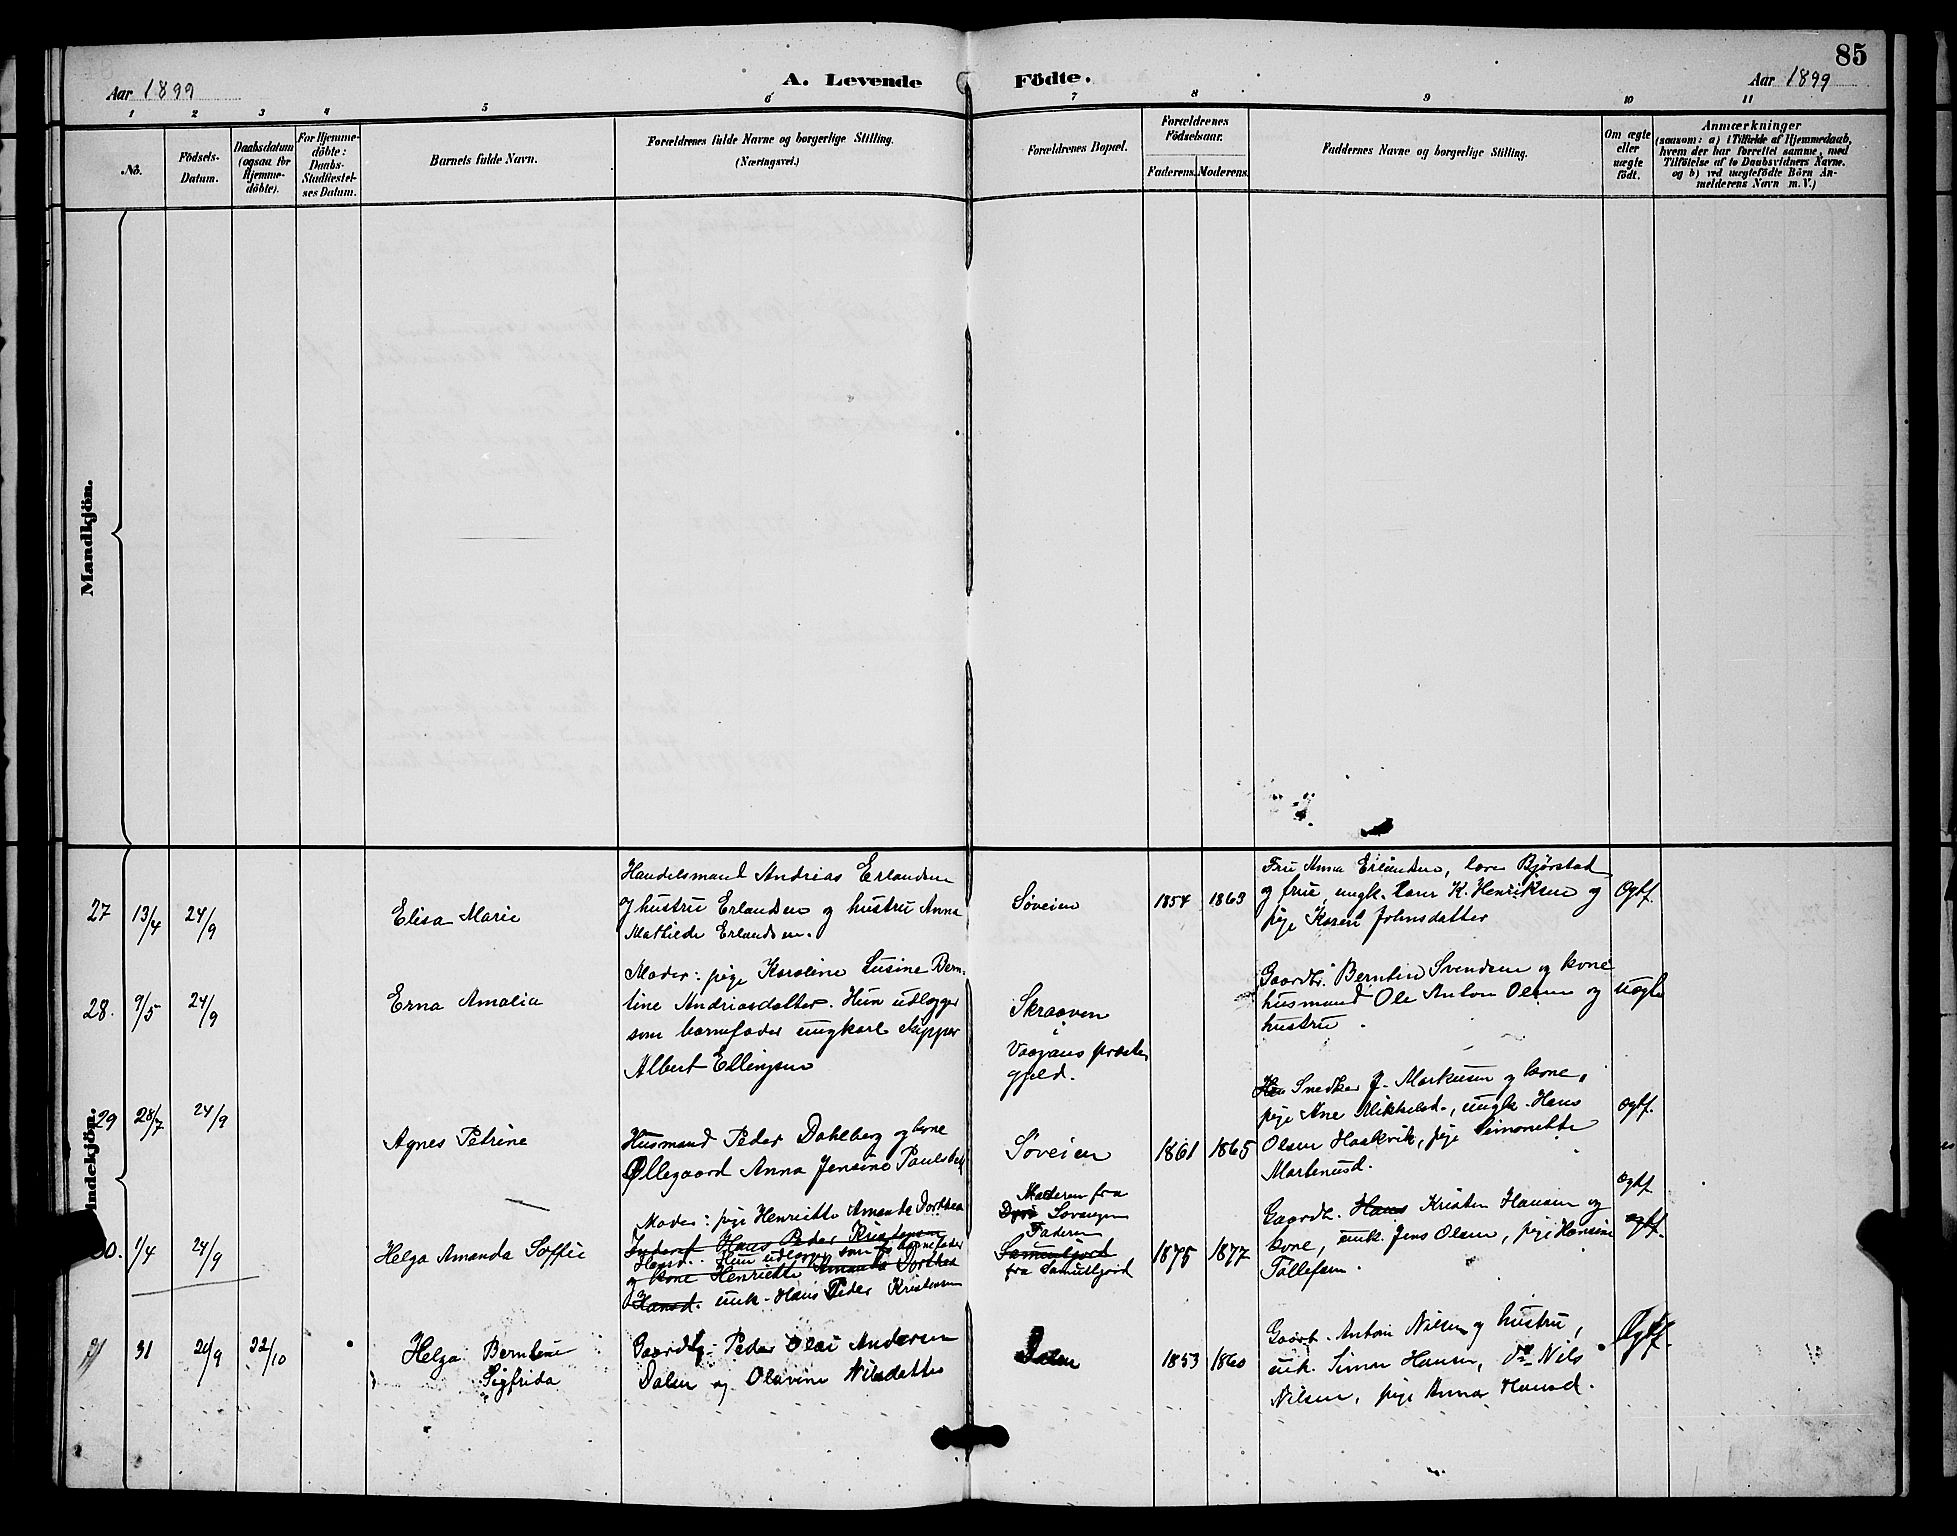 85
Aar 1899
A. Levende Födte.
Aar 1899
1 2 3 4 5 6 7 8 9 10 11
No.
Födsels-
Datum.
Daabsdatum
(ogsaa for
Hjemme-
döbte).
For Hjemme-
döbte:
Daabs-
Stadfæstel-
ses Datum.
Barnets fulde Navn.
Forældrenes fulde Navne og borgerlige Stilling.
(Næringsvei.)
Forældrenes Bopæl.
Forældrenes
Födselsaar.
Faderens. Moderens.
Faddernes Navne og borgerlige Stilling.
Om ægte
eller
uægte
födt.
Anmærkninger
(saasom: a) i Tilfælde af Hjemmedaab,
hvem der har forrettet samme, med
Tilföielse af to Daabsvidners Navne.
og b) ved uægtefödte Börn An-
melderens Navn m. V.)
Mandkjön.
27
13/4
24/9
Elisa Marie
Handelsmand Andreas Erlandsen
og hustru Erlandsen og hustru Anna
Mathilde Erlandsen.
Søveien
1854
1863
Fru Anna Erlandsen, lærer Bjørstad
og frue, ungk. K. Henriksen og
pige Johnsdatter
Ægtf.
28.
9/5
24/9
Erna Amalia
Moder: pige Karoline Susine Bern-
tine Andriasdatter. Hun udlægger
som barnefader ungkarl skipper
Albert Ellingsen
Skraaven
i
Vaagans præste
gjeld.
Gaardbr. Berntin Svendsen og kone
husmand Ole Anton Olsen og
hustru.
uægte
Kvindekjön.
29
28/7
24/9
Agnes Petrine
Husmand Peder Dahlberg og kone
Øllegaard Anna Jensine Paulsdatt
Søveien
1861
1865
Snedker J. Markusen og kone,
pige Ane Mikkelsd., ungk. Hans
Olsen Haakvik, pige Simonette
Martenusd.
ægtf.
30.
1/4
24/9
Helga Amanda Soffie
Moder: pige Henriette Amanda Dorthea
Inderst Hans Peder Kristensen
Hansd. Hun udlægger som barnefader
og kone Henriette Amanda Dorthea
Hansd. unk. Hans Peder Kristensen
Moderen fra
Sovangen
Faderen
fra
1875
1877
Gaardb. Hans Kristen Hansen og
kone, unk. Jens Olsen, pige Hansine
Tollefsen.
ægtf.
ægtf.
31
31
24/9
22/10
Helga Berntine
Sigfrida
Gaardbg. Peder Olai Andersen
Dalen og Olavine Nilsdatter
Dalen
1853
1860
Gaarb. Anton Nilsen og hustru,
unk. Simon Hansen, do Nils
Nilsen, pige Anna Hansd.
Ægtf.